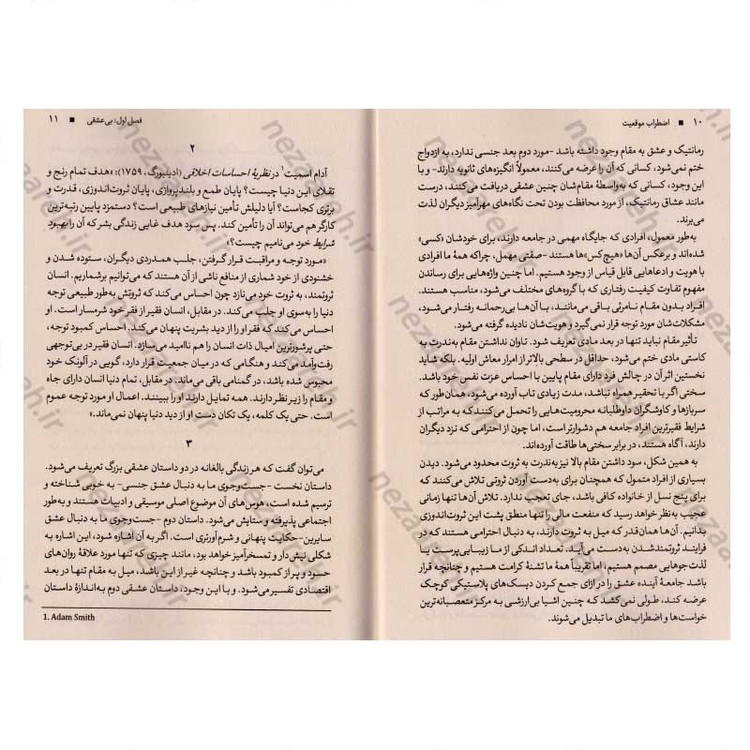 ۱۰ ■ اضطراب موقعیت
رمانتیک و عشق به مقام وجود داشته باشد -مورد دوم بعد جنسی ندارد، به ازدواج
ختم نمی‌شود، کسانی که آن را عرضه می‌کنند، معمولاً انگیزه‌های ثانویه دارند- و با
این وجود، کسانی که به‌واسطهٔ مقام‌شان چنین عشقی دریافت می‌کنند، درست
مانند عشاق رمانتیک، از مورد محافظت بودن تحت نگاه‌های مهرآمیز دیگران لذت
می‌برند.
به‌طور معمول، افرادی که جایگاه مهمی در جامعه دارند، برای خودشان «کسی»
شده‌اند و برعکس آن‌ها «هیچ‌کس»ها هستند -صفتی مهمل، چراکه همهٔ ما افرادی
با هویت و ادعاهایی قابل قیاس از وجود هستیم. اما چنین واژه‌هایی برای رساندن
مفهوم تفاوت کیفیت رفتاری که با گروه‌های مختلف می‌شود، مناسب هستند.
افراد بدون مقام نامرئی باقی می‌مانند، با آن‌ها بی‌رحمانه رفتار می‌شود،
مشکلات‌شان مورد توجه قرار نمی‌گیرد و هویت‌شان نادیده گرفته می‌شود.
تأثیر مقام نباید تنها در بعد مادی تعریف شود. تاوان نداشتن مقام به‌ندرت به
کاستی مادی ختم می‌شود، حداقل در سطحی بالاتر از امرار معاش اولیه. بلکه شاید
نخستین اثر آن در چالش فرد دارای مقام پایین با احساس عزت نفس خود باشد.
سختی اگر با تحقیر همراه نباشد، مدت زیادی تاب آورده می‌شود، همان‌طور که
سربازها و کاوشگران داوطلبانه محرومیت‌هایی را تحمل می‌کنند که به مراتب از
شرایط فقیرترین افراد جامعه هم دشوارتر است، اما چون از احترامی که نزد دیگران
دارند، آگاه هستند، در برابر سختی‌ها طاقت آورده‌اند.
به همین شکل، سود داشتن مقام بالا نیز به‌ندرت به ثروت محدود می‌شود. دیدن
بسیاری از افراد متمول که همچنان برای به‌دست آوردن ثروتی تلاش می‌کنند که
برای پنج نسل از خانواده کافی باشد، جای تعجب ندارد. تلاش آن‌ها تنها زمانی
عجیب به‌نظر خواهد رسید که منفعت مالی را تنها منطق پشت این ثروت‌اندوزی
بدانیم. آن‌ها همان‌قدر که میل به ثروت دارند، به دنبال احترامی هستند که در
فرایند ثروتمند شدن به‌دست می‌آید. تعداد اندکی از ما زیبایی‌پرست یا
لذت‌جوهایی مصمم هستیم، اما تقریباً همهٔ ما تشنهٔ کرامت هستیم و چنانچه قرار
باشد جامعهٔ آینده عشق را در ازای جمع کردن دیسک‌های پلاستیکی کوچک
عرضه کند، طولی نمی‌کشد که چنین اشیا بی‌ارزشی به مرکز متعصبانه‌ترین
خواست‌ها و اضطراب‌های ما تبدیل می‌شوند.
فصل اول: بی‌عشقی ■ ۱۱
۲
آدام اسمیت۱ در نظریهٔ احساسات اخلاقی (ادینبورگ، ۱۷۵۹): «هدف تمام رنج و
تقلای این دنیا چیست؟ پایان طمع و بلندپروازی، پایان ثروت‌اندوزی، قدرت و
برتری کجاست؟ آیا دلیلش تأمین نیازهای طبیعی است؟ دستمزد پایین رتبه‌ترین
کارگر هم می‌تواند آن را تأمین کند. پس سود هدف غایی زندگی بشر که آن را بهبود
شرایط خود می‌نامیم چیست؟»
«مورد توجه و مراقبت قرار گرفتن، جلب همدردی دیگران، ستوده شدن و
خشنودی از خود شماری از منافع ناشی از آن هستند که می‌توانیم برشماریم. انسان
ثروتمند، به ثروت خود می‌نازد چون احساس می‌کند که ثروتش به‌طور طبیعی توجه
دنیا را به‌سوی او جلب می‌کند. در مقابل، انسان فقیر از فقر خود شرمسار است. او
احساس می‌کند که فقر او را از دید بشریت پنهان می‌کند. احساس کمبود توجه،
حتی پرشورترین امیال ذات انسان را هم ناامید می‌سازد. انسان فقیر در بی‌توجهی
رفت‌وآمد می‌کند و هنگامی که در میان جمعیت قرار دارد، گویی در آلونک خود
محبوس شده باشد، در گمنامی باقی می‌ماند. در مقابل، تمام دنیا انسان دارای جاه
و مقام را زیر نظر دارند. همه تمایل دارند او را ببینند. اعمال او مورد توجه عموم
است. حتی یک کلمه، یک تکان دست او از دید دنیا پنهان نمی‌ماند.»
۳
می‌توان گفت که هر زندگی بالغانه در دو داستان عشقی بزرگ تعریف می‌شود.
داستان نخست -جست‌وجوی ما به دنبال عشق جنسی- به خوبی شناخته و
ترسیم شده است، هوس‌های آن موضوع اصلی موسیقی و ادبیات هستند و به‌طور
اجتماعی پذیرفته و ستایش می‌شود. داستان دوم -جست‌وجوی ما به دنبال عشق
سایرین- حکایت پنهانی و شرم‌آورتری است. اگر به آن اشاره شود، این اشاره به
شکلی نیش‌دار و تمسخرآمیز خواهد بود، مانند چیزی که تنها مورد علاقهٔ روان‌های
حسود و پر از کمبود باشد و چنانچه غیر از این باشد، میل به مقام تنها در بعد
اقتصادی تفسیر می‌شود. و با این وجود، داستان عشقی دوم به‌اندازهٔ داستان
1. Adam Smith
nezareh.ir